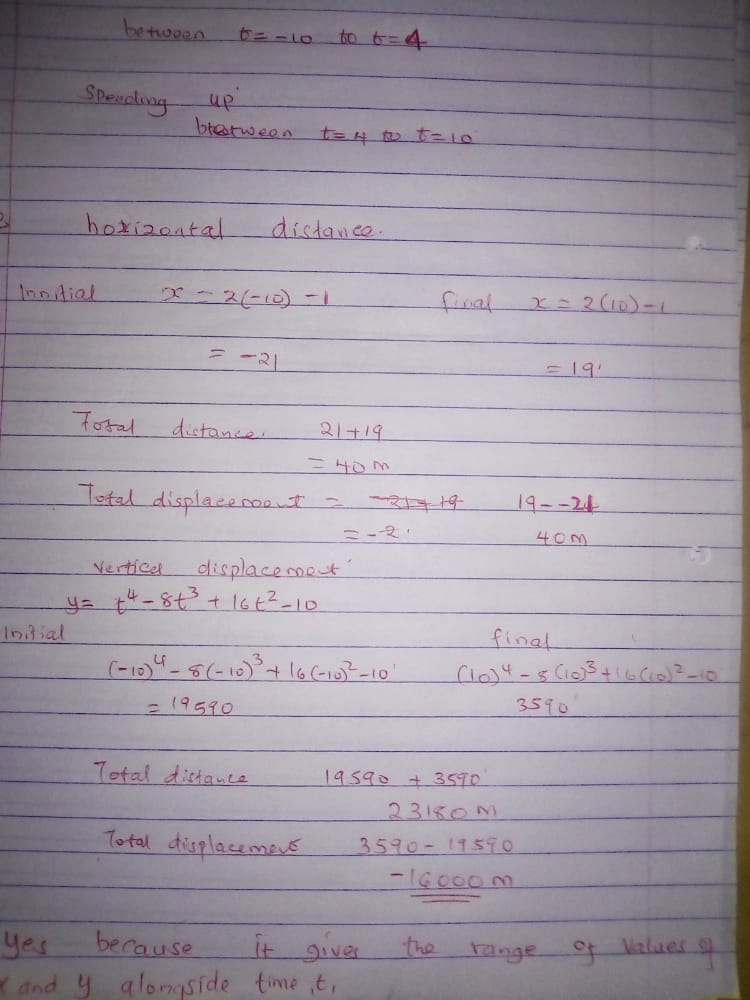 between t=-10 to t=4
Speeding up
between t=4 to t=10
horizontal distance.
Innitial x = 2(-10) -1 final x = 2(10)-1
= -21 = 19
Total distance. 21+19
= 40m
Total displacement = -21+19 19--21
= -2. 40m
vertices displacement
y= t⁴-8t³+16t²-10
Initial final
(-10)⁴-8(-10)³+16(-10)²-10 (10)⁴-8(10)³+16(10)²-10
= 19590 3590
Total distance 19590 + 3590
23180m
Total displacement 3590-19590
-16000m
Yes because it gives the range of values of
x and y alongside time, t,